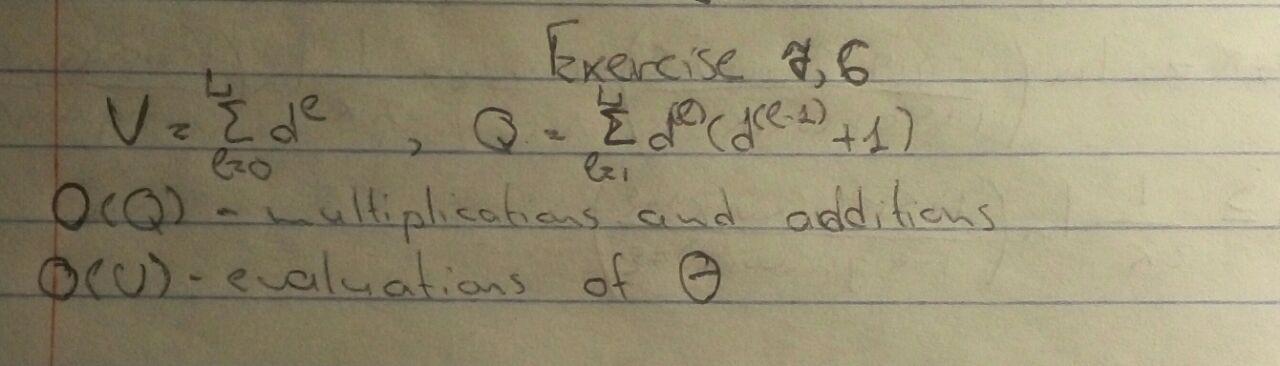 Exercise 7,6
V = Σ_{l=0}^{L} d^l , Q = Σ_{l=1}^{L} d^{(l)}(d^{(l-1)}+1)
O(Q) - multiplications and additions
O(V) - evaluations of Θ